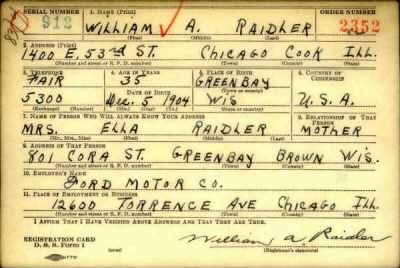 SERIAL NUMBER 1. NAME (Print) ORDER NUMBER
912 WILLIAM A. RAIDLER 2352
(First) (Middle) (Last)
2. ADDRESS (Print)
1400 E. 53rd ST. CHICAGO COOK ILL.
(Number and street or R. F. D. number) (Town) (County) (State)
3. TELEPHONE 4. AGE IN YEARS 5. PLACE OF BIRTH 6. COUNTRY OF CITIZENSHIP
FAIR 35 GREENBAY
DATE OF BIRTH (Town or county)
5300 Dec. 5 1904 WIS U.S.A.
(Mo.) (Day) (Yr.) (State or country)
7. NAME OF PERSON WHO WILL ALWAYS KNOW YOUR ADDRESS 8. RELATIONSHIP OF THAT PERSON
MRS. ELLA RAIDLER MOTHER
(Mr., Mrs., Miss) (First) (Middle) (Last)
9. ADDRESS OF THAT PERSON
801 CORA ST. GREENBAY BROWN WIS.
(Number and street or R. F. D. number) (Town) (County) (State)
10. EMPLOYER'S NAME
FORD MOTOR CO.
11. PLACE OF EMPLOYMENT OR BUSINESS
12600 TORRENCE AVE CHICAGO ILL.
(Number and street or R. F. D. number) (Town) (County) (State)
I AFFIRM THAT I HAVE VERIFIED ABOVE ANSWERS AND THAT THEY ARE TRUE.
REGISTRATION CARD
D. S. S. Form 1 William A. Raidler
(Registrant's signature)